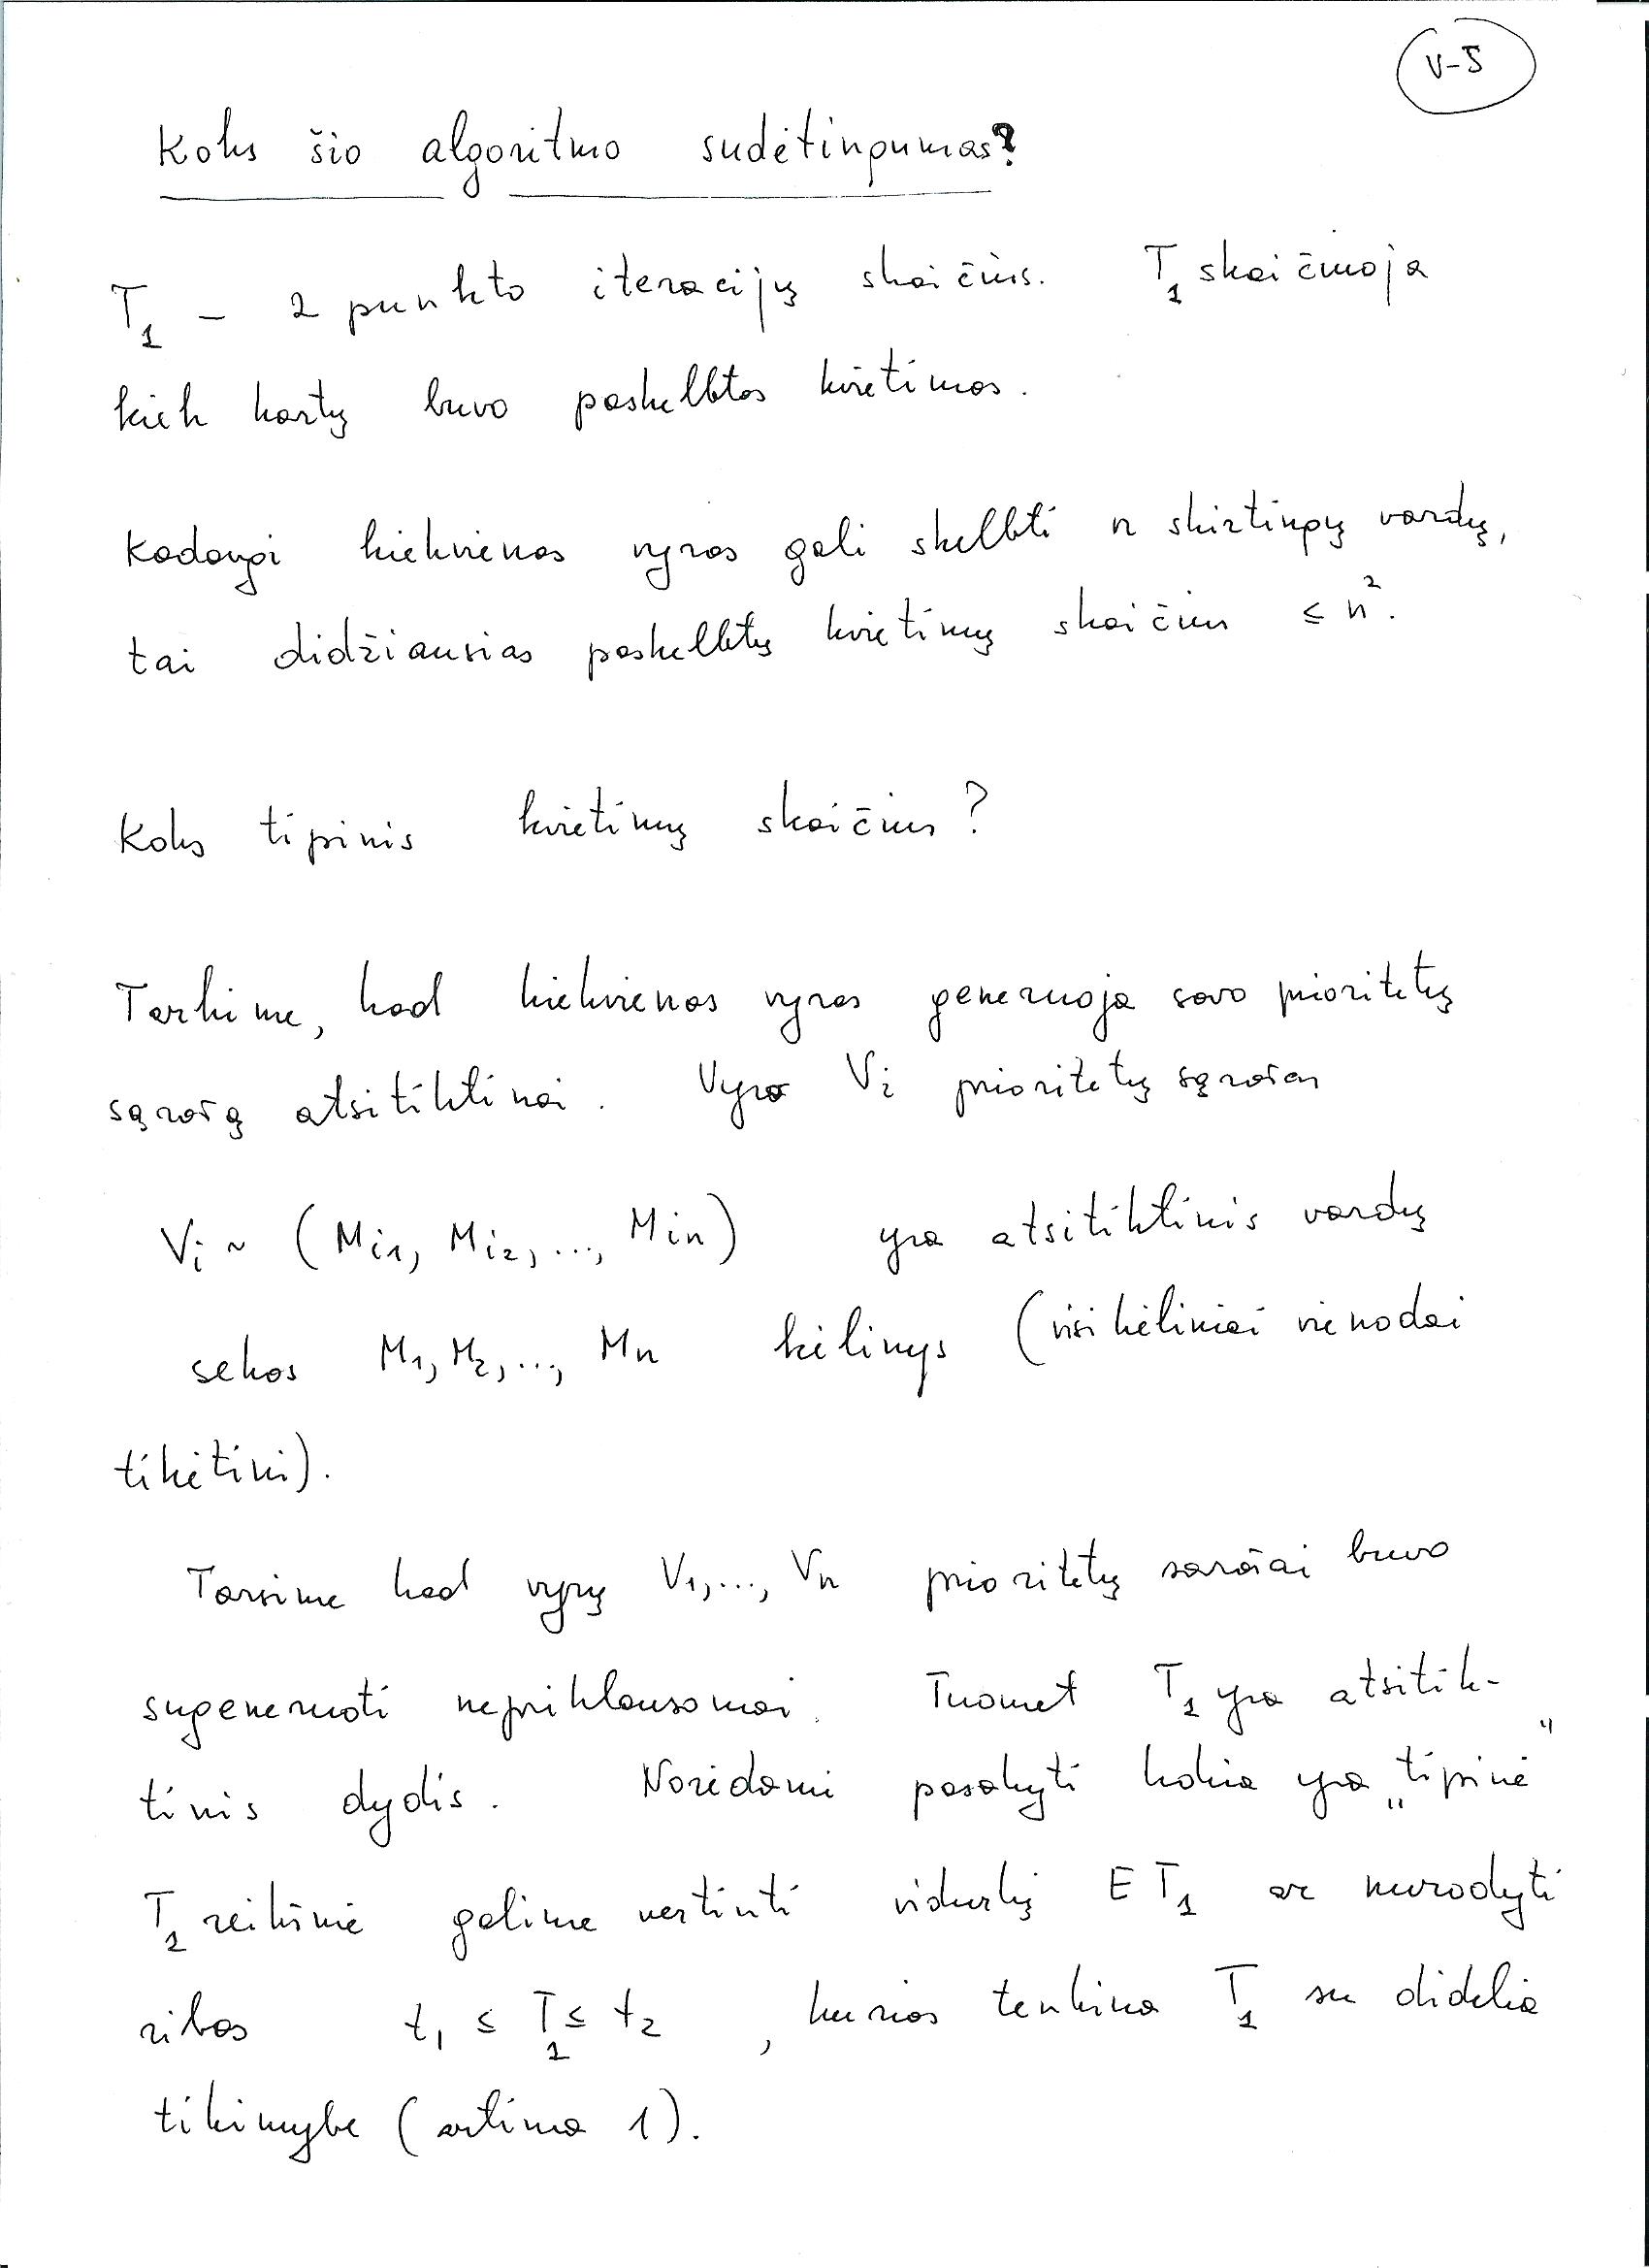 V-5
Koks šio algoritmo sudėtingumas?
T₁ – 2 punkto iteracijų skaičius. T₁ skaičiuoja
kiek kartų buvo paskelbtas kvietimas.
Kadangi kiekvienas vyras gali skelbti n skirtingų vardų,
tai didžiausias paskelbtų kvietimų skaičius ≤ n².
Koks tipinis kvietimų skaičius?
Tarkime, kad kiekvienas vyras generuoja savo prioritetų
sąrašą atsitiktinai. Vyro Vi prioritetų sąrašas
Vi ~ (Mi1, Mi2, ..., Min) yra atsitiktinis vardų
sekos M₁, M₂, ..., Mn kėlinys (visi kėliniai vienodai
tikėtini).
Tarsime kad vyrų V₁, ..., Vn prioritetų sarašai buvo
sugeneruoti nepriklausomai. Tuomet T₁ yra atsitik-
tinis dydis. Norėdami pasakyti kokia yra „tipinė"
T₁ reikšmė galime vertinti vidurkį E T₁ ar nurodyti
ribas t₁ ≤ T₁ ≤ t₂, kurias tenkina T₁ su didelia
tikimybe (artima 1).